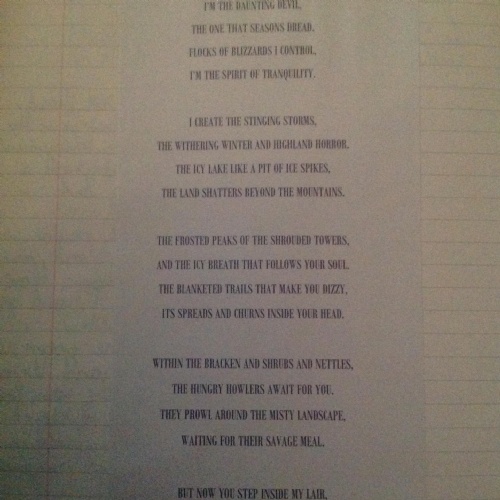 I'M THE DAUNTING DEVIL,
THE ONE THAT SEASONS DREAD,
FLOCKS OF BLIZZARDS I CONTROL,
I'M THE SPIRIT OF TRANQUILITY.
I CREATE THE STINGING STORMS,
THE WITHERING WINTER AND HIGHLAND HORROR.
THE ICY LAKE LIKE A PIT OF ICE SPIKES,
THE LAND SHATTERS BEYOND THE MOUNTAINS.
THE FROSTED PEAKS OF THE SHROUDED TOWERS,
AND THE ICY BREATH THAT FOLLOWS YOUR SOUL.
THE BLANKETED TRAILS THAT MAKE YOU DIZZY,
ITS SPREADS AND CHURNS INSIDE YOUR HEAD.
WITHIN THE BRACKEN AND SHRUBS AND NETTLES,
THE HUNGRY HOWLERS AWAIT FOR YOU.
THEY PROWL AROUND THE MISTY LANDSCAPE,
WAITING FOR THEIR SAVAGE MEAL.
BUT NOW YOU STEP INSIDE MY LAIR,